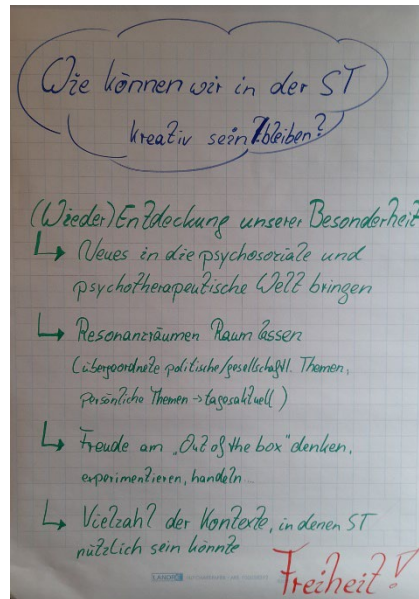 Wie können wir in der ST
kreativ sein/bleiben?
(Wieder)Entdeckung unserer Besonderheit
↳ Neues in die psychosoziale und
psychotherapeutische Welt bringen
↳ Resonanzräumen Raum lassen
(übergeordnete politische/gesellschaftl. Themen,
persönliche Themen → tagesaktuell)
↳ Freude am „Out of the box" denken,
experimentieren, handeln...
↳ Vielzahl der Kontexte, in denen ST
nützlich sein könnte
Freiheit!
LANDRÉ